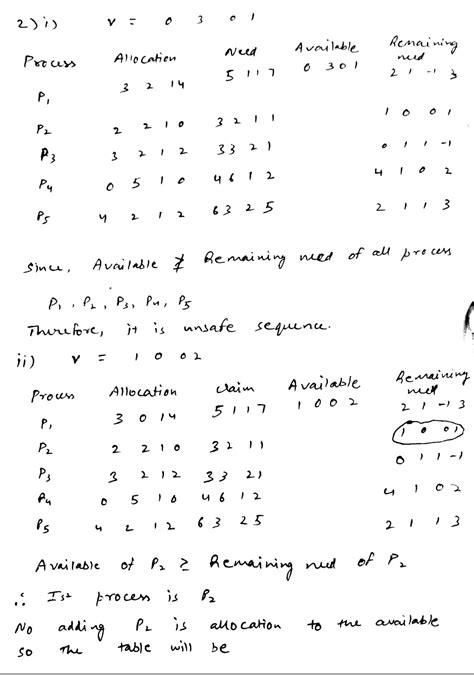 2) i) v = 0 3 0 1
Process Allocation Need Available Remaining need
P1 3 2 14 5 1 1 7 0 3 0 1 2 1 -1 3
P2 2 2 1 0 3 2 1 1 1 0 0 1
P3 3 2 1 2 3 3 2 1 0 1 1 -1
P4 0 5 1 0 4 6 1 2 4 1 0 2
P5 4 2 1 2 6 3 2 5 2 1 1 3
Since, Available ≱ Remaining need of all process
P1, P2, P3, P4, P5
Therefore, it is unsafe sequence.
ii) v = 1 0 0 2
Process Allocation Claim Available Remaining need
P1 3 0 14 5 1 1 7 1 0 0 2 2 1 -1 3
P2 2 2 1 0 3 2 1 1 1 0 0 1
P3 3 2 1 2 3 3 2 1 0 1 1 -1
P4 0 5 1 0 4 6 1 2 4 1 0 2
P5 4 2 1 2 6 3 2 5 2 1 1 3
Available of P2 ≥ Remaining need of P2
∴ Ist process is P2
No adding P2 is allocation to the available
so the table will be